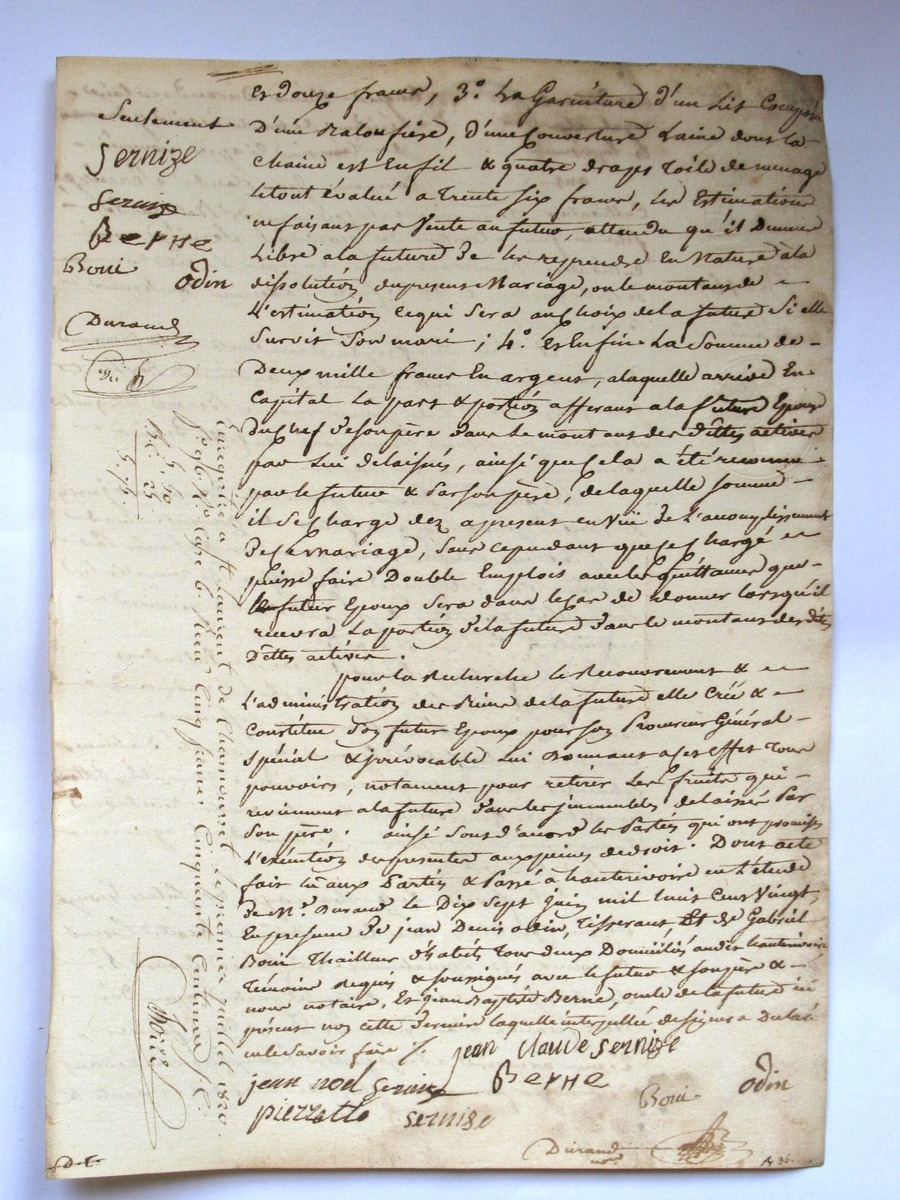 Seulement
Sernize
Berne
Boui
odin
Durand
et douze francs, 3.° La Garniture d'un Lit Composée
D'une Balouffière, d'une Couverture Laine dont la
chaine est En fil & quatre draps Toile de menage
Le tout évalué a Trente Six francs, Les Estimations
ne faisans pas Vente au futur, attendu qu'il Demeure
Libre a la future De les reprendre En Nature a la
dissolution du present Mariage, ou le montant de
L'estimation ce qui sera au choix de la future Si elle
Survit Son mari ; 4.° Et Enfin La Somme de
Deux mille francs En argent, a laquelle arrive En
Capital La part & portion afférant a la future Epouse
Du chef de son père dans Le montant des dettes actives
par Lui délaissés, ainsi que Cela a été reconnu
par le futur & Par son père, de laquelle somme
il se charge dez apresent en Vüe de L'accomplissement
De ce mariage, Sans cependant que ce chargé
puisse faire Double Emplois avec les quittances que
le futur Epoux Sera dans le cas de donner lorsqu'il
recevra La portion de la future dans le montant des dites
Dettes actives.
pour la Recherche le Recouvrement &
L'administration des Biens de la future elle Crée &
Constitue Son futur Epoux pour son Procureur Général
Spécial & irrévocable Lui Donnant a cet effet Tous
pouvoirs, notament pour retirer Les fruits qui
reviennent a la future dans les immeubles délaissés Par
Son père. ainsi sont d'accord les Parties qui ont promis
L'exécution des presentes aux peines de droit. Dont acte
fait lu aux Parties & Passé à hauterivoire en L'étude
De M.e Durand le Dix Sept juin mil huit Cent Vingt,
En présence De jean Denis odin, Tisserant, Et de Gabriel
Boui Thailleur d'habits Tous deux Domiciliés audit hauterivoire,
Témoins Requis & soussignés avec le futur & son père &
nous notaire, Et Jean Baptiste Berne, oncle de la future ici
présent non cette dernière laquelle interpellée de signer a Déclaré
ne le Savoir faire /.
jean Claude Sernize
jean noel Sernize
Berne
Boui
odin
pierrette
Sernize
Durand
Enregistré a St Laurent de Chamousset Le premier juillet 1820.
f.° 96. v.° Case 6. Reçu Cinq francs Cinquante Centimes
5. 50